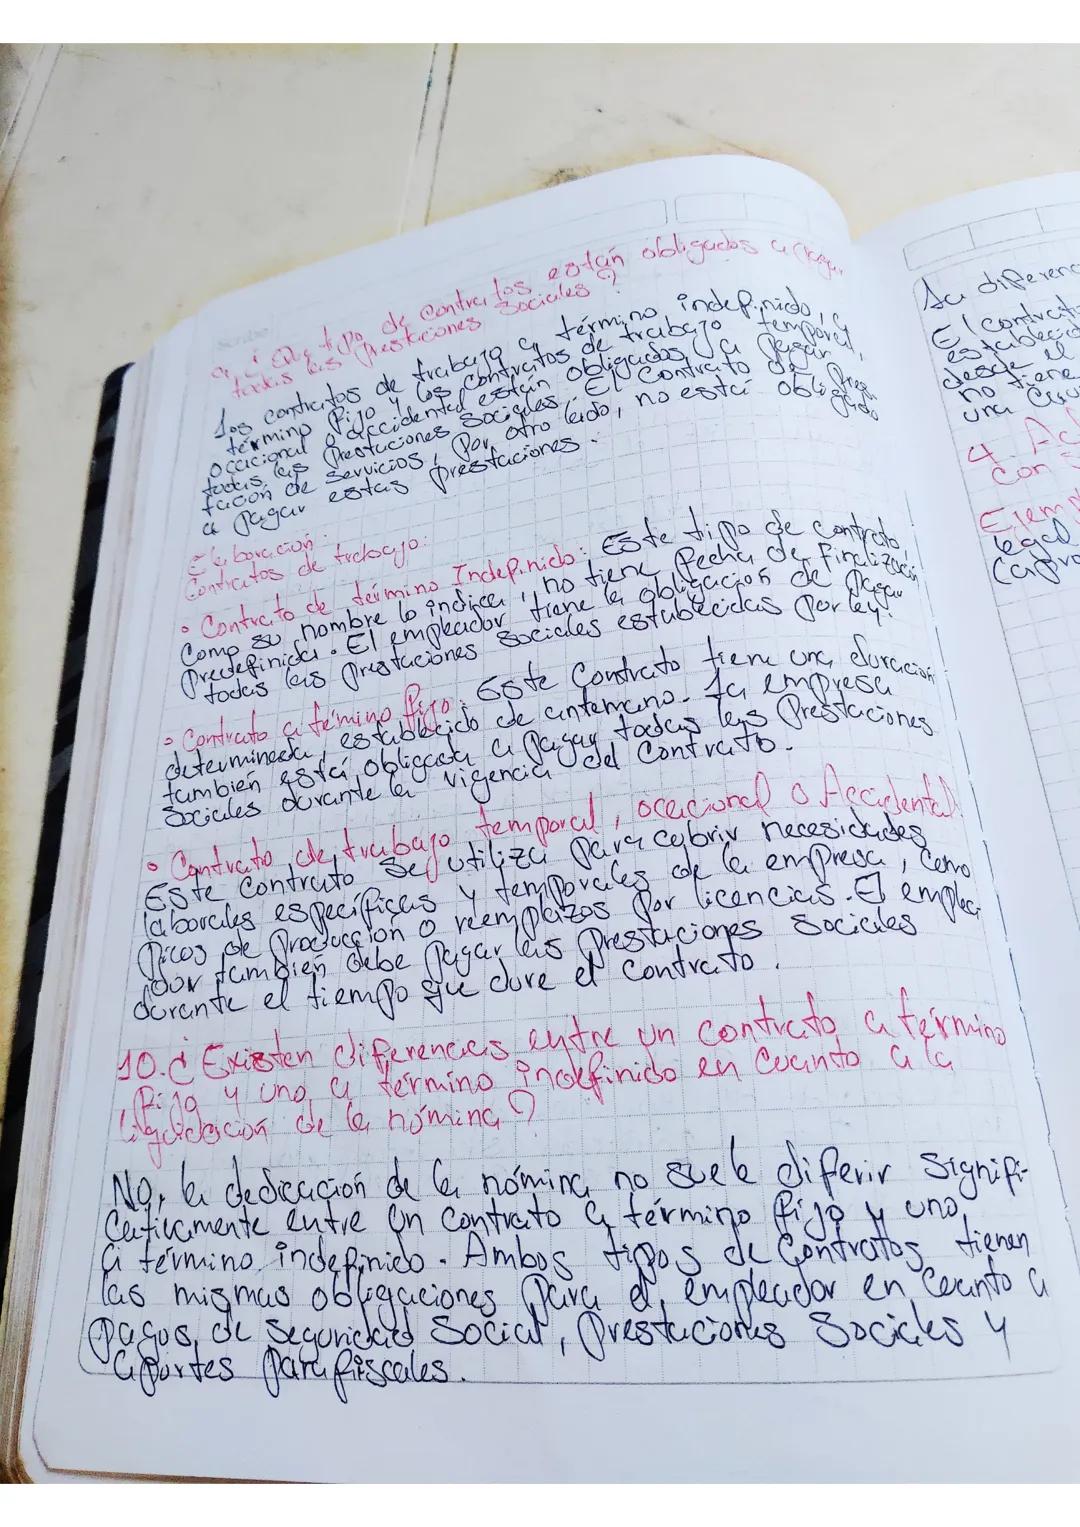 9. ¿Que tipo de contratos están obligados a pagar
todas las prestaciones sociales?
Los contratos de trabajo a término indefinido, a
término fijo y los contratos de trabajo temporal,
ocacional o accidental están obligados a pagar
todas las prestaciones sociales. El contrato de pres
tación de servicios, por otro lado, no está obligado
a pagar estas prestaciones.
Elaboración:
Contratos de trabajo:
• Contrato de término Indefinido: Este tipo de contrato,
Como su nombre lo indica, no tiene fecha de finalización
predefinida. El empleador tiene la obligación de pagar
todas las prestaciones sociales establecidas por ley.
• Contrato a término fijo: Este Contrato tiene una duración
determinada, establecido de antemano. La empresa
también está obligada a pagar todas las prestaciones
sociales durante la vigencia del contrato.
• Contrato de trabajo temporal, ocacional o Accidental:
Este contrato se utiliza para cubrir necesidades
laborales específicas y temporales de la empresa, como
picos de producción o reemplazos por licencias. El emplea
dor también debe pagar las prestaciones sociales
durante el tiempo que dure el contrato.
10. ¿Existen diferencias entre un contrato a término
fijo y uno a término indefinido en cuanto a la
liquidación de la nómina?
No, la dedicación de la nómina no suele diferir signifi-
cativamente entre un contrato a término fijo y uno
a término indefinido. Ambos tipos de contratos tienen
las mismas obligaciones para el empleador en cuanto a
pagos de seguridad social, prestaciones sociales y
aportes parafiscales.
La diferenc
El contrato
establecid
desde el
no tiene
una
4.
con
Ejemp
legal